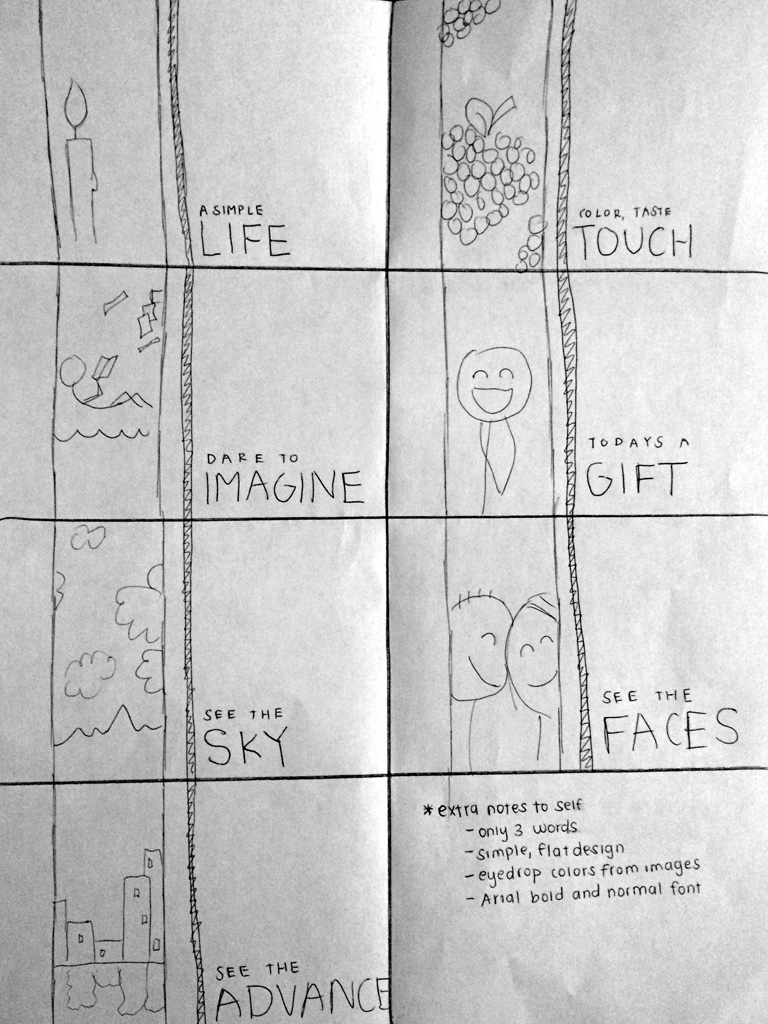 A SIMPLE
LIFE
COLOR, TASTE
TOUCH
DARE TO
IMAGINE
TODAYS A
GIFT
SEE THE
SKY
SEE THE
FACES
SEE THE
ADVANCE
* extra notes to self
- only 3 words
- simple, flat design
- eyedrop colors from images
- Arial bold and normal font